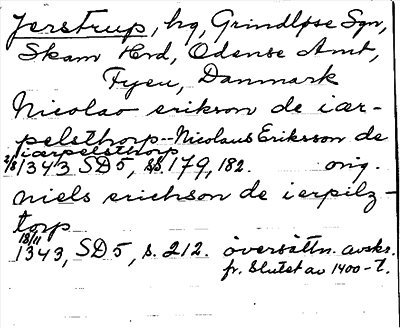 Jerstrup, hg, Grindløse Sgn,
Skam Hrd, Odense Amt,
Fyen, Danmark
Nicolao erikson de iær-
pelsthorp - Nicolaus Eriksson de
iærpelsthorp
2/8 1343 SD 5, ss. 179, 182. orig.
niels erichson de ierpilz-
torp
18/11 1343, SD 5, s. 212. översättn. avskr.
fr. slutet av 1400-t.